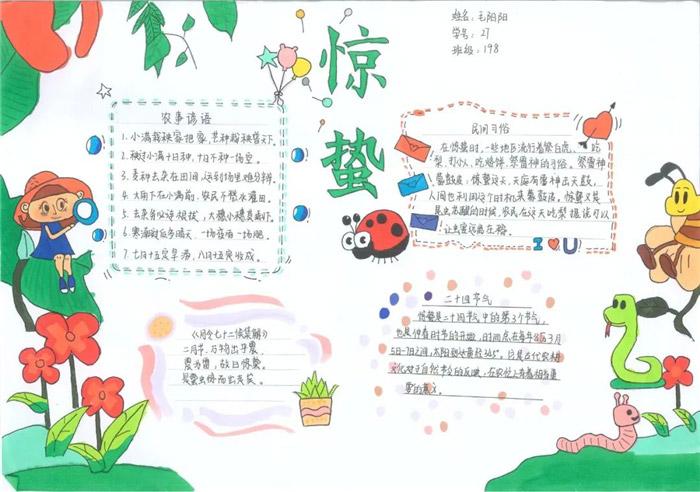 姓名:毛阳阳
学号:27
班级:198
惊
蛰
农事谚语
1.小满栽秧家把家,芒种栽秧普天下。
2.秧过小满十日种,十日不种一场空。
3.麦种去杂在田间,运到场里难分辨。
4.大雨下在小满前,农民不愁水灌田。
5.去杂务必连根拔,大穗小穗莫丢下。
6.寒潮过后多晴天,一场夜雨一场肥。
7.七月十五定旱涝,八月十五定收成。
民间习俗
在惊蛰时,一些地区流行着祭白虎、吃
梨、打小人、吃烙饼、祭雷神的习俗。祭雷神
蒙鼓皮:惊蛰这天,天庭有雷神击天鼓,
人间也利用这个时机来蒙鼓皮。惊蛰又是
昆虫苏醒的时候,农民在这天吃梨提误可以
让虫害远离庄稼。
I U
《月令七十二候集解》
二月节,万物出乎震,
震为雷,故曰惊蛰,
是蛰虫惊而出走矣。
二十四节气
惊蛰是二十四节气中的第3个节气,
也是仲春时节的开始,时间点在每年公历3月
5日-7日之间,太阳到达黄经345°。它是古代农耕
文化对于自然节令的反映,在农忙上有着相当重
要的意义。